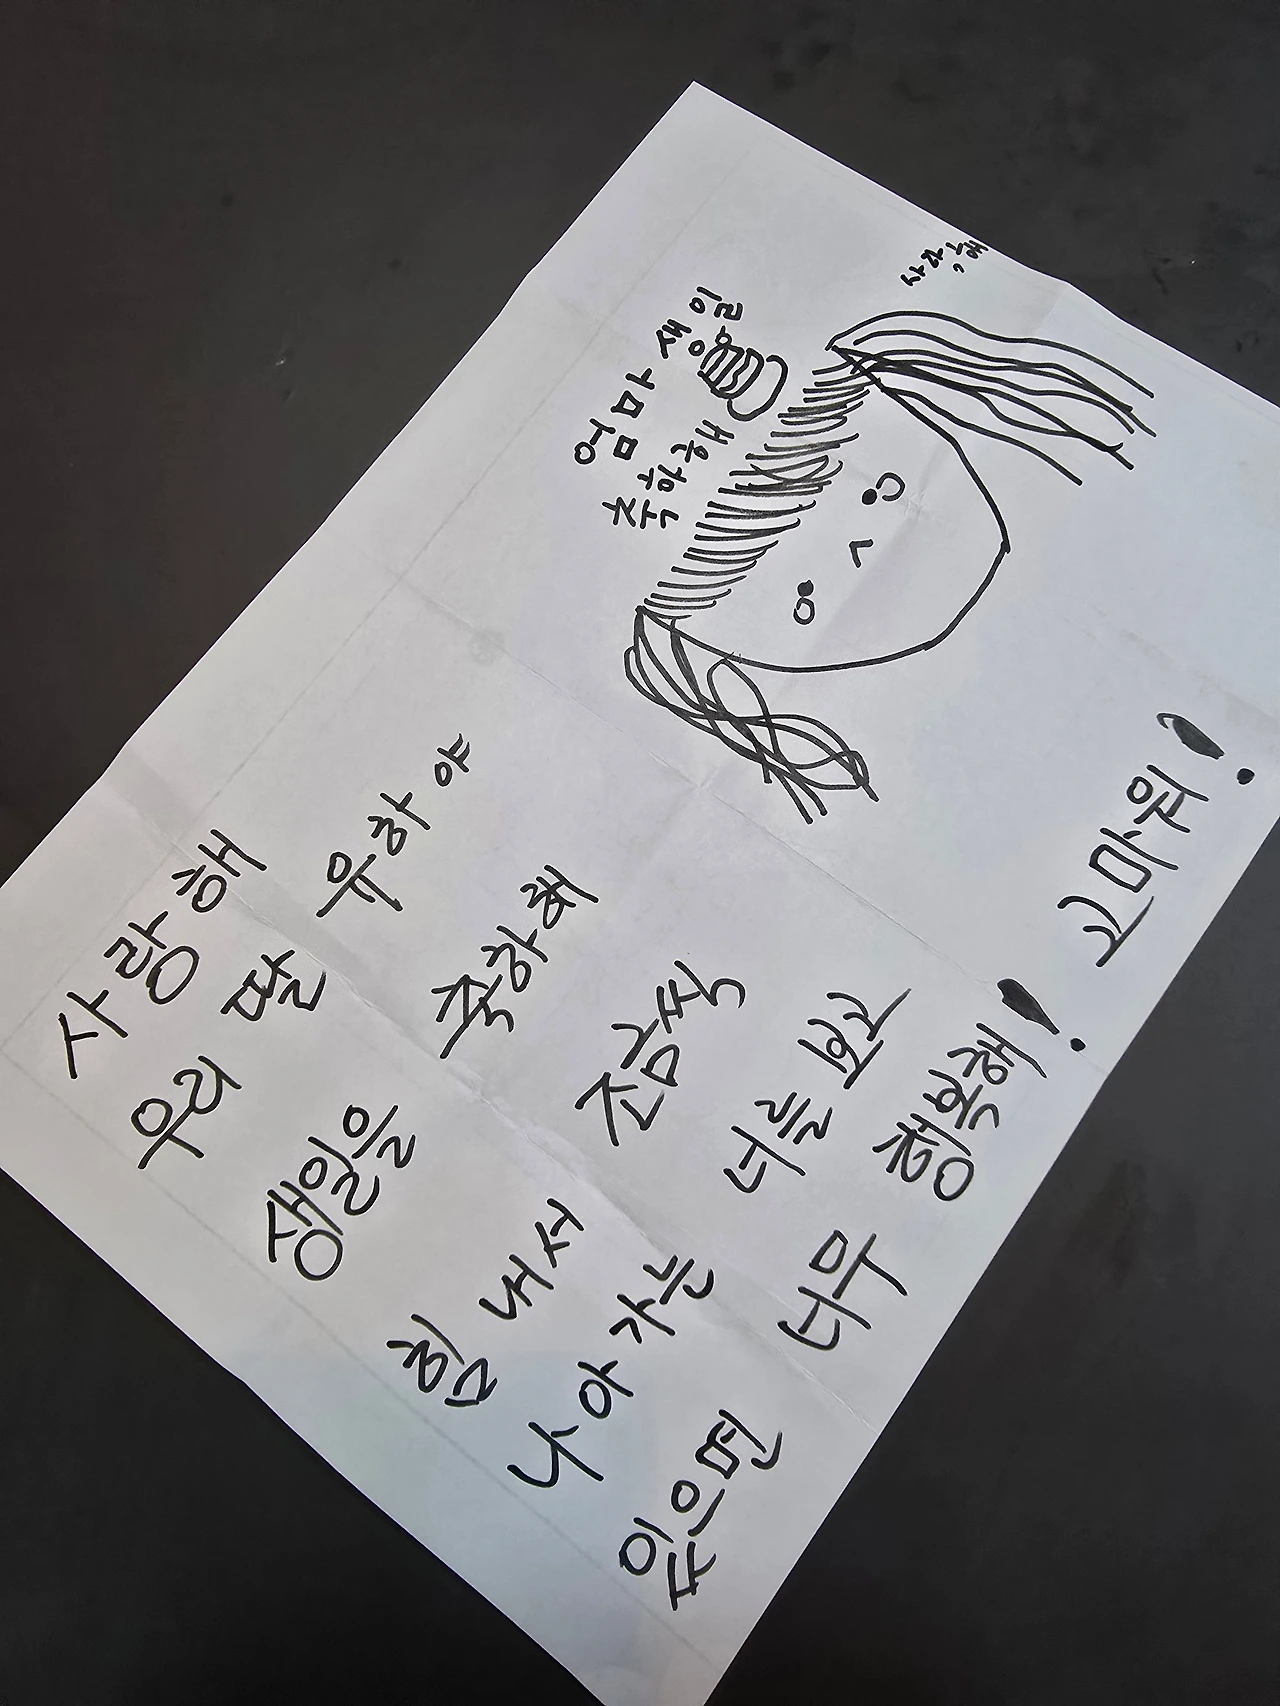 사랑해
우리 딸 유하야
생일을 축하해
힘 내서 조금씩
나아가는 너를 보고
있으면 너무 행복해! 고마워!
엄마 생일
축하해
사랑해